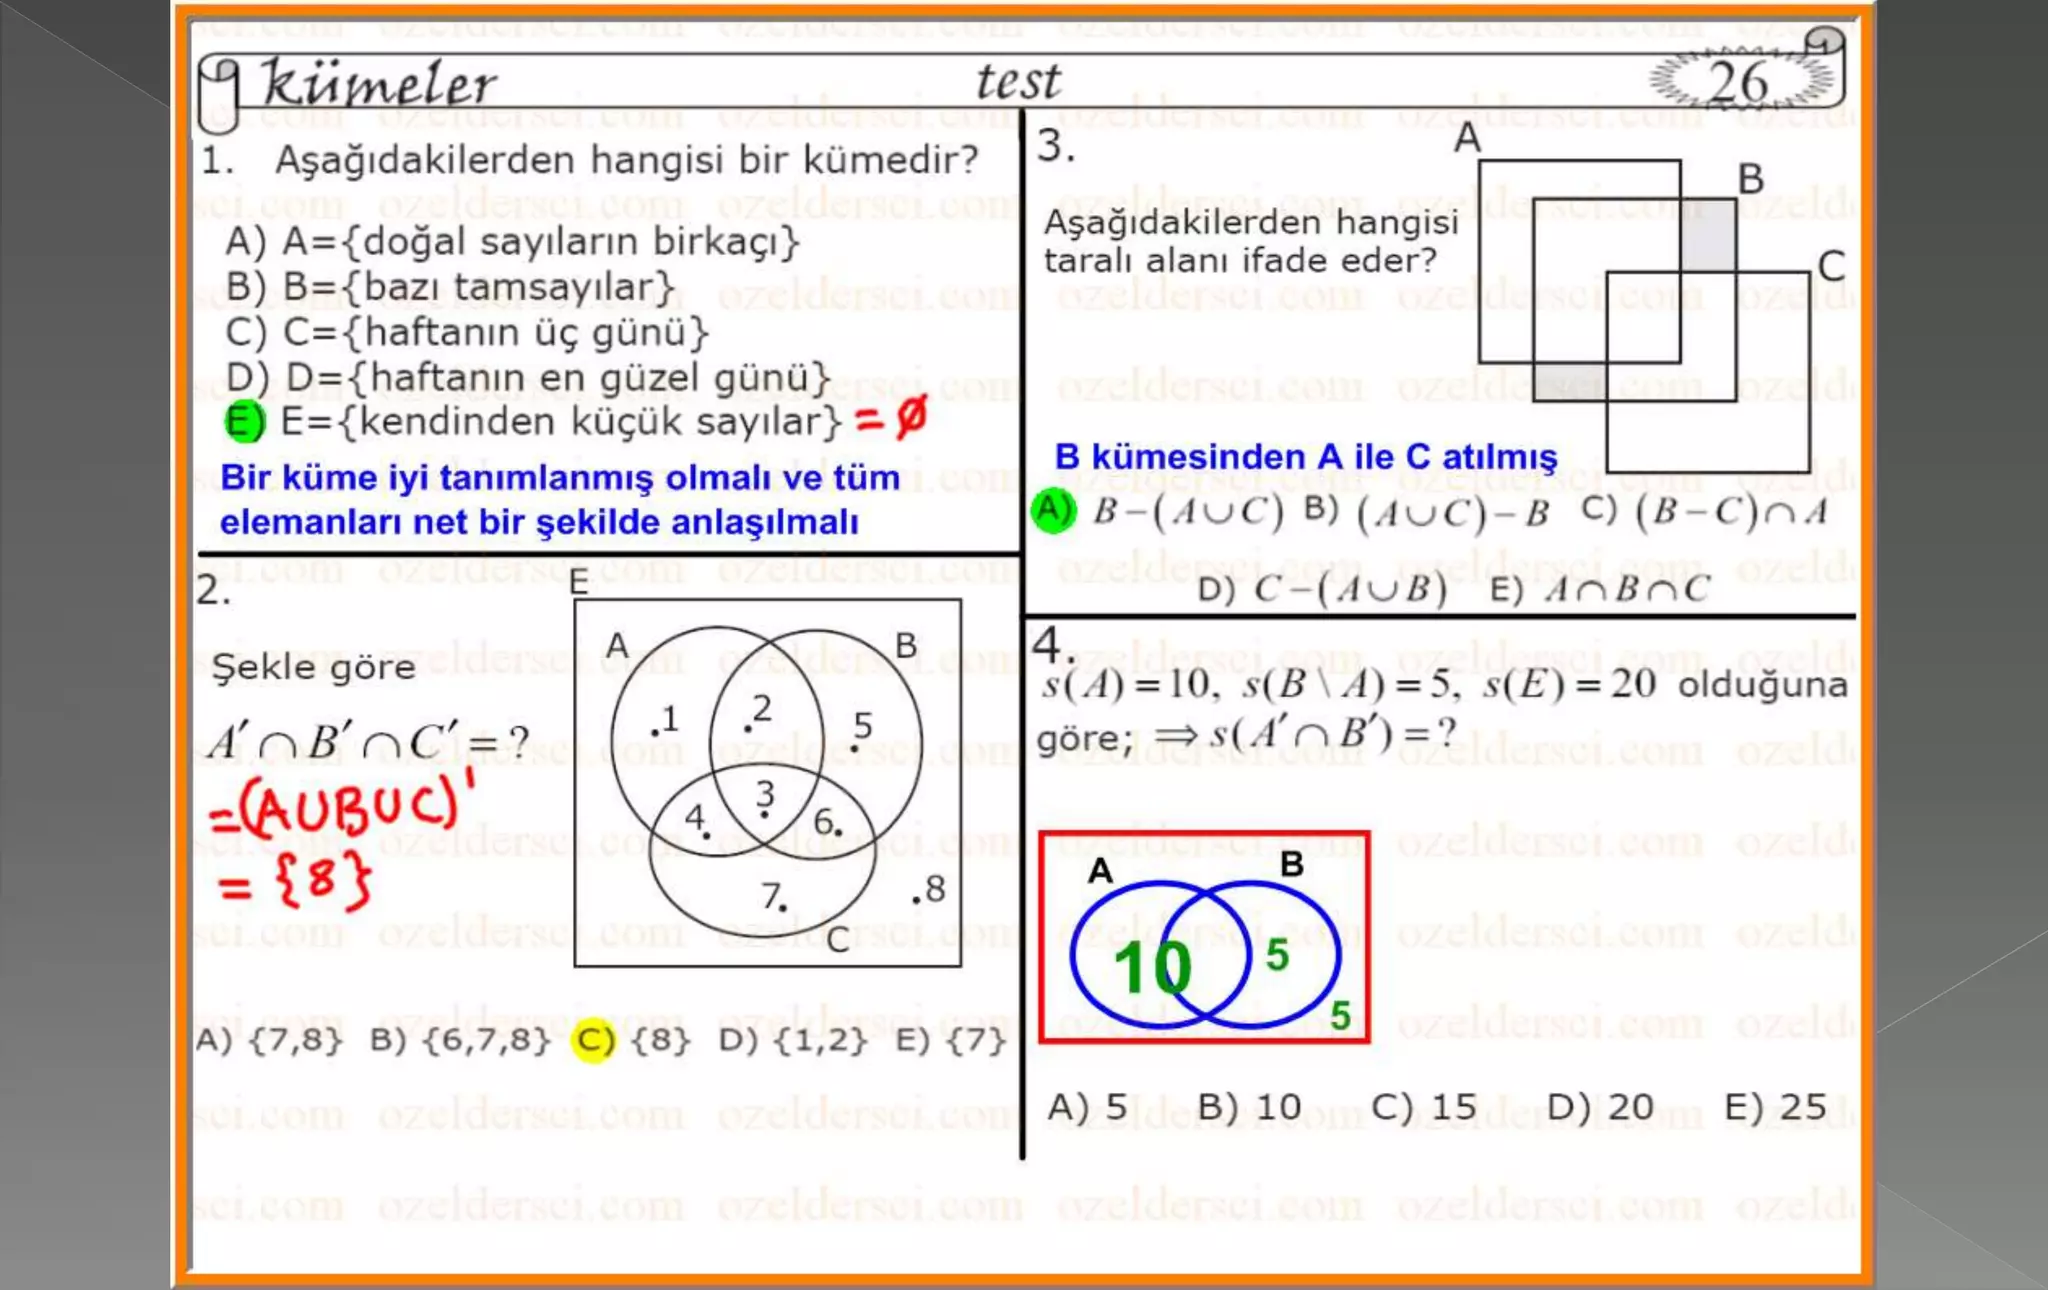 kümeler test 26
1. Aşağıdakilerden hangisi bir kümedir?
A) A={doğal sayıların birkaçı}
B) B={bazı tamsayılar}
C) C={haftanın üç günü}
D) D={haftanın en güzel günü}
E) E={kendinden küçük sayılar} = ∅
Bir küme iyi tanımlanmış olmalı ve tüm
elemanları net bir şekilde anlaşılmalı
2.
Şekle göre
A′∩B′∩C′=?
=(AUBUC)'
= {8}
E
A B
.1 2 5
4 3 6
7 .8
C
A) {7,8} B) {6,7,8} C) {8} D) {1,2} E) {7}
3.
Aşağıdakilerden hangisi
taralı alanı ifade eder?
A
B
C
B kümesinden A ile C atılmış
A) B−(A∪C) B) (A∪C)−B C) (B−C)∩A
D) C−(A∪B) E) A∩B∩C
4.
s(A)=10, s(B\A)=5, s(E)=20 olduğuna
göre; ⇒s(A′∩B′)=?
A B
10 5
5
A) 5 B) 10 C) 15 D) 20 E) 25
ozeldersci.com